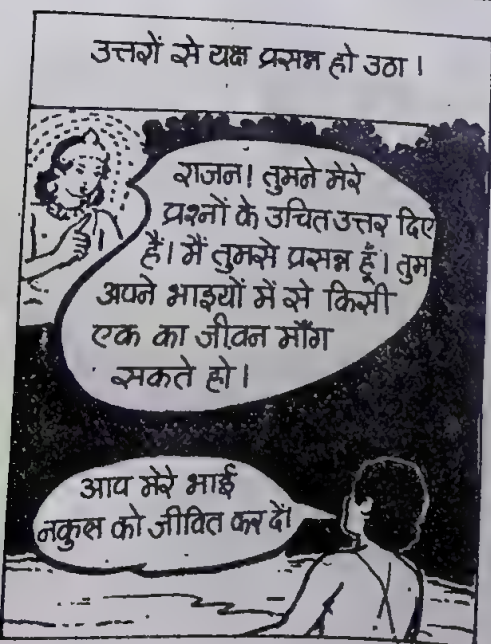 उत्तरों से यक्ष प्रसन्न हो उठा।
राजन! तुमने मेरे
प्रश्नों के उचित उत्तर दिए
हैं। मैं तुमसे प्रसन्न हूँ। तुम
अपने भाइयों में से किसी
एक का जीवन माँग
सकते हो।
आप मेरे भाई
नकुल को जीवित कर दें।